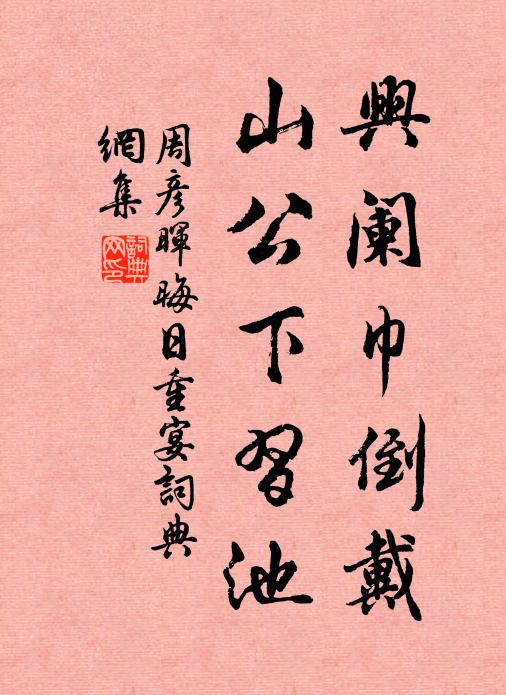 興阑巾倒戴
山公下習池
周彦暉晦日重宴詞典
網集
詞典
网印